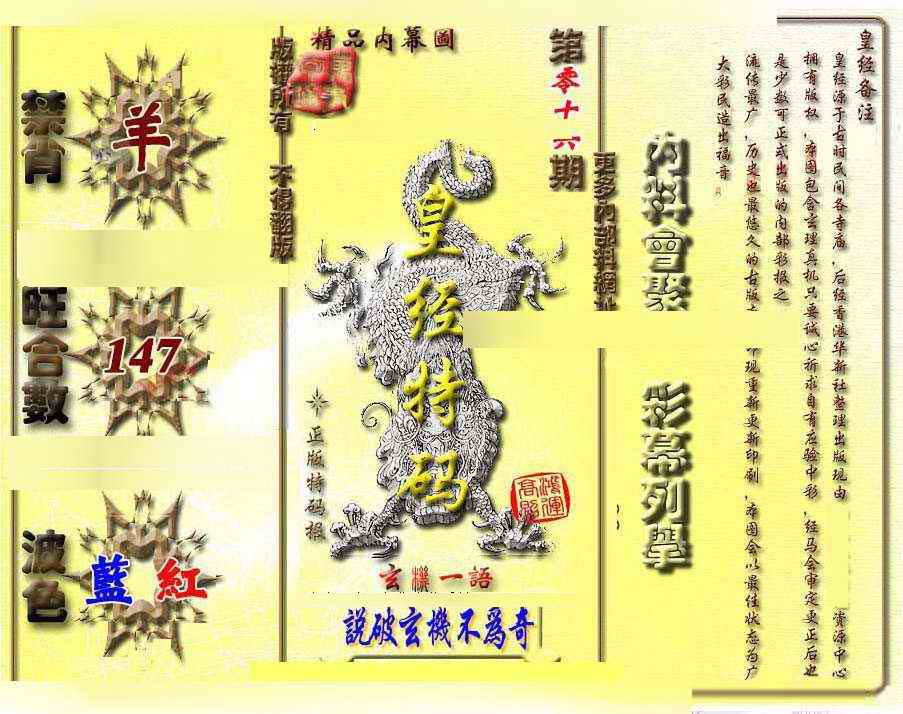 精品内幕圖
第零十六期
版權所有 不得翻版
禁肖
羊
旺合數
147
波色
藍 紅
皇经特码
正版特码报
鴻運高照
玄機一語
説破玄機不爲奇
更多內部料網址
內料會聚
彩幕列擧
皇经备注
皇经源于古时民间各寺庙，后经香港华新社整理出版现由
资源中心
拥有版权，本图包含玄理真机只要诚心祈求自有应验中彩，经马会审定更正后也
是少数可正式出版的内部彩报之
流传最广，历史也最悠久的古版
现重新更新印刷，本图会以最佳状态为广
大彩民造出福音